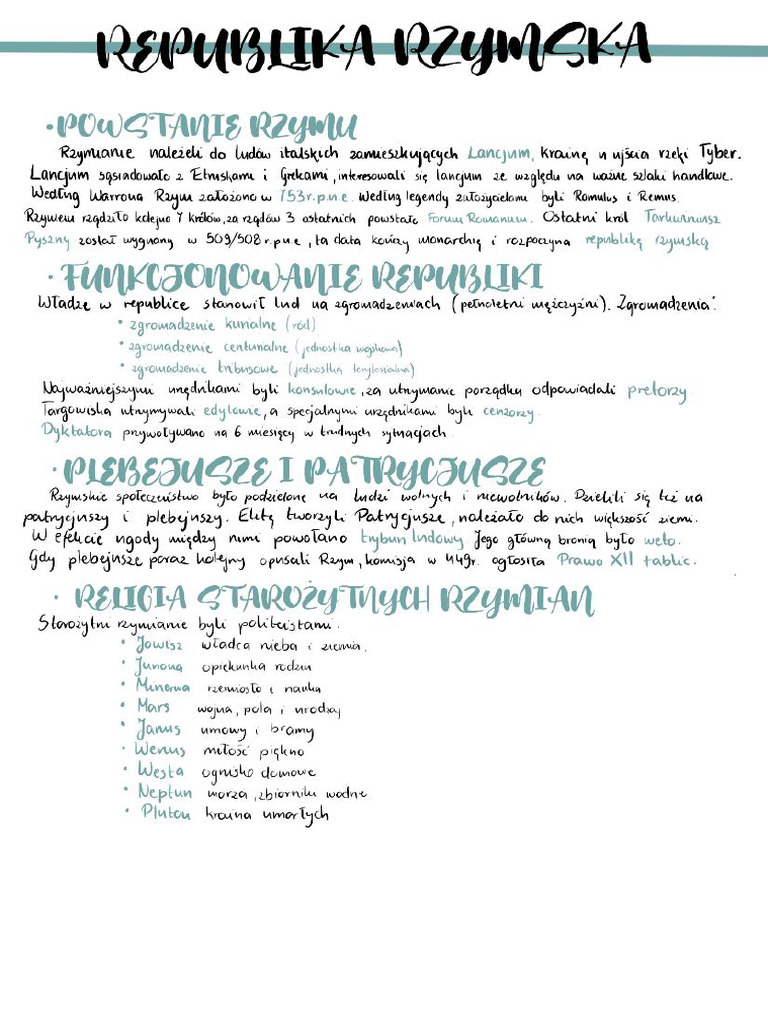 REPUBLIKA RZYMSKA
• POWSTANIE RZYMU
Rzymianie należeli do ludów italskich zamieszkujących Lancjum, krainę u ujścia rzeki Tyber.
Lancjum sąsiadowało z Etruskami i Grekami, interesowali się lancjum ze względu na ważne szlaki handlowe.
Według Warrona Rzym założono w 753r.p.n.e. Według legendy założycielami byli Romulus i Remus.
Rzymem rządziło kolejno 7 królów, za rządów 3 ostatnich powstało Forum Romanum. Ostatni król Tarkwiniusz
Pyszny został wygnany w 509/508 r.p.n.e, ta data kończy monarchię i rozpoczyna republikę rzymską
• FUNKCJONOWANIE REPUBLIKI
Władzę w republice stanowił lud na zgromadzeniach (pełnoletni mężczyźni). Zgromadzenia:
• zgromadzenie kurialne (ród)
• zgromadzenie centurialne (jednostka wojskowa)
• zgromadzenie tribusowe (jednostka terytorialna)
Najważniejszymi urzędnikami byli konsulowie, za utrzymanie porządku odpowiadali pretorzy
Targowiska utrzymywali edylowie, a specjalnymi urzędnikami byli cenzorzy.
Dyktatora przywoływano na 6 miesięcy w trudnych sytuacjach.
• PLEBEJUSZE I PATRYCJUSZE
Rzymskie społeczeństwo było podzielone na ludzi wolnych i niewolników. Dzielili się też na
patrycjuszy i plebejuszy. Elitę tworzyli Patrycjusze, należało do nich większość ziemi.
W efekcie ugody między nimi powołano trybun ludowy. Jego główną bronią było weto.
Gdy plebejusze poraz kolejny opuścili Rzym, komisja w 449r. ogłosiła Prawo XII tablic.
• RELIGIA STAROŻYTNYCH RZYMIAN
Starożytni rzymianie byli politeistami.
• Jowisz władca nieba i ziemia.
• Junona opiekunka rodzin
• Minerwa rzemiosło i nauka
• Mars wojna, pola i urodzaj
• Janus umowy i bramy
• Wenus miłość piękno
• Westa ognisko domowe
• Neptun morza, zbiorniki wodne
• Pluton kraina umarłych